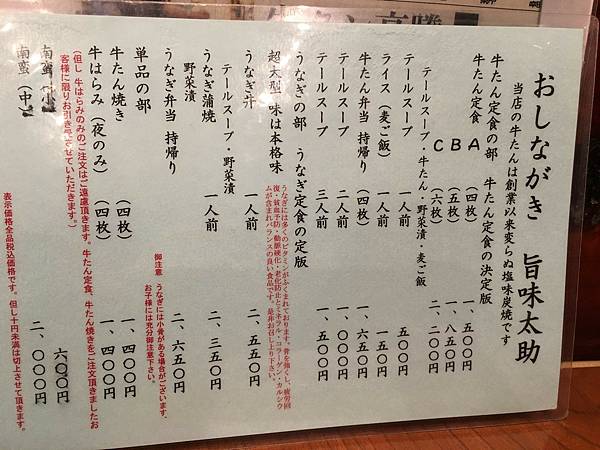 おしながき 旨味太助
当店の牛たんは創業以来変らぬ塩味炭焼です
牛たん定食の部 牛たん定食の決定版
牛たん定食 A (四枚) 一、五〇〇円
B (五枚) 一、八五〇円
C (六枚)
テールスープ・牛たん・野菜漬・麦ご飯
テールスープ 一人前 五〇〇円
ライス(麦ご飯) 一人前 一五〇円
牛たん弁当 持帰り (四枚) 一、六五〇円
テールスープ 二人前 一、〇〇〇円
テールスープ 三人前 一、五〇〇円
うなぎの部 うなぎ定食の定版
超大型 味は本格味
うなぎには多くのビタミンがふくまれております。骨を強くし、疲労回
復・貧血予防・動脈硬化・老化防止とミネラル・コラーゲン・カルシウ
ムが含まれバランスの良い食品です。是非お召し上り下さい。
うなぎ丼 一人前 二、五五〇円
テールスープ・野菜漬
野菜漬
うなぎ蒲焼 一人前 二、三五〇円
うなぎ弁当 持帰り 二、六五〇円
御注意 うなぎには小骨がある場合がございます、
お子様には充分御注意下さい。
単品の部
牛たん焼き (四枚) 一、四〇〇円
牛はらみ(夜のみ) (四枚) 一、四〇〇円
(但し牛はらみのみのご注文はご遠慮頂きます。牛たん定食、牛たん焼きをご注文頂きましたお
客様に限りお引きさせていただきます。)
南蛮(小) 六〇〇円
南蛮(中) 二、〇〇〇円
表示価格全品税込価格です。但し十円未満は切上させて頂きます。